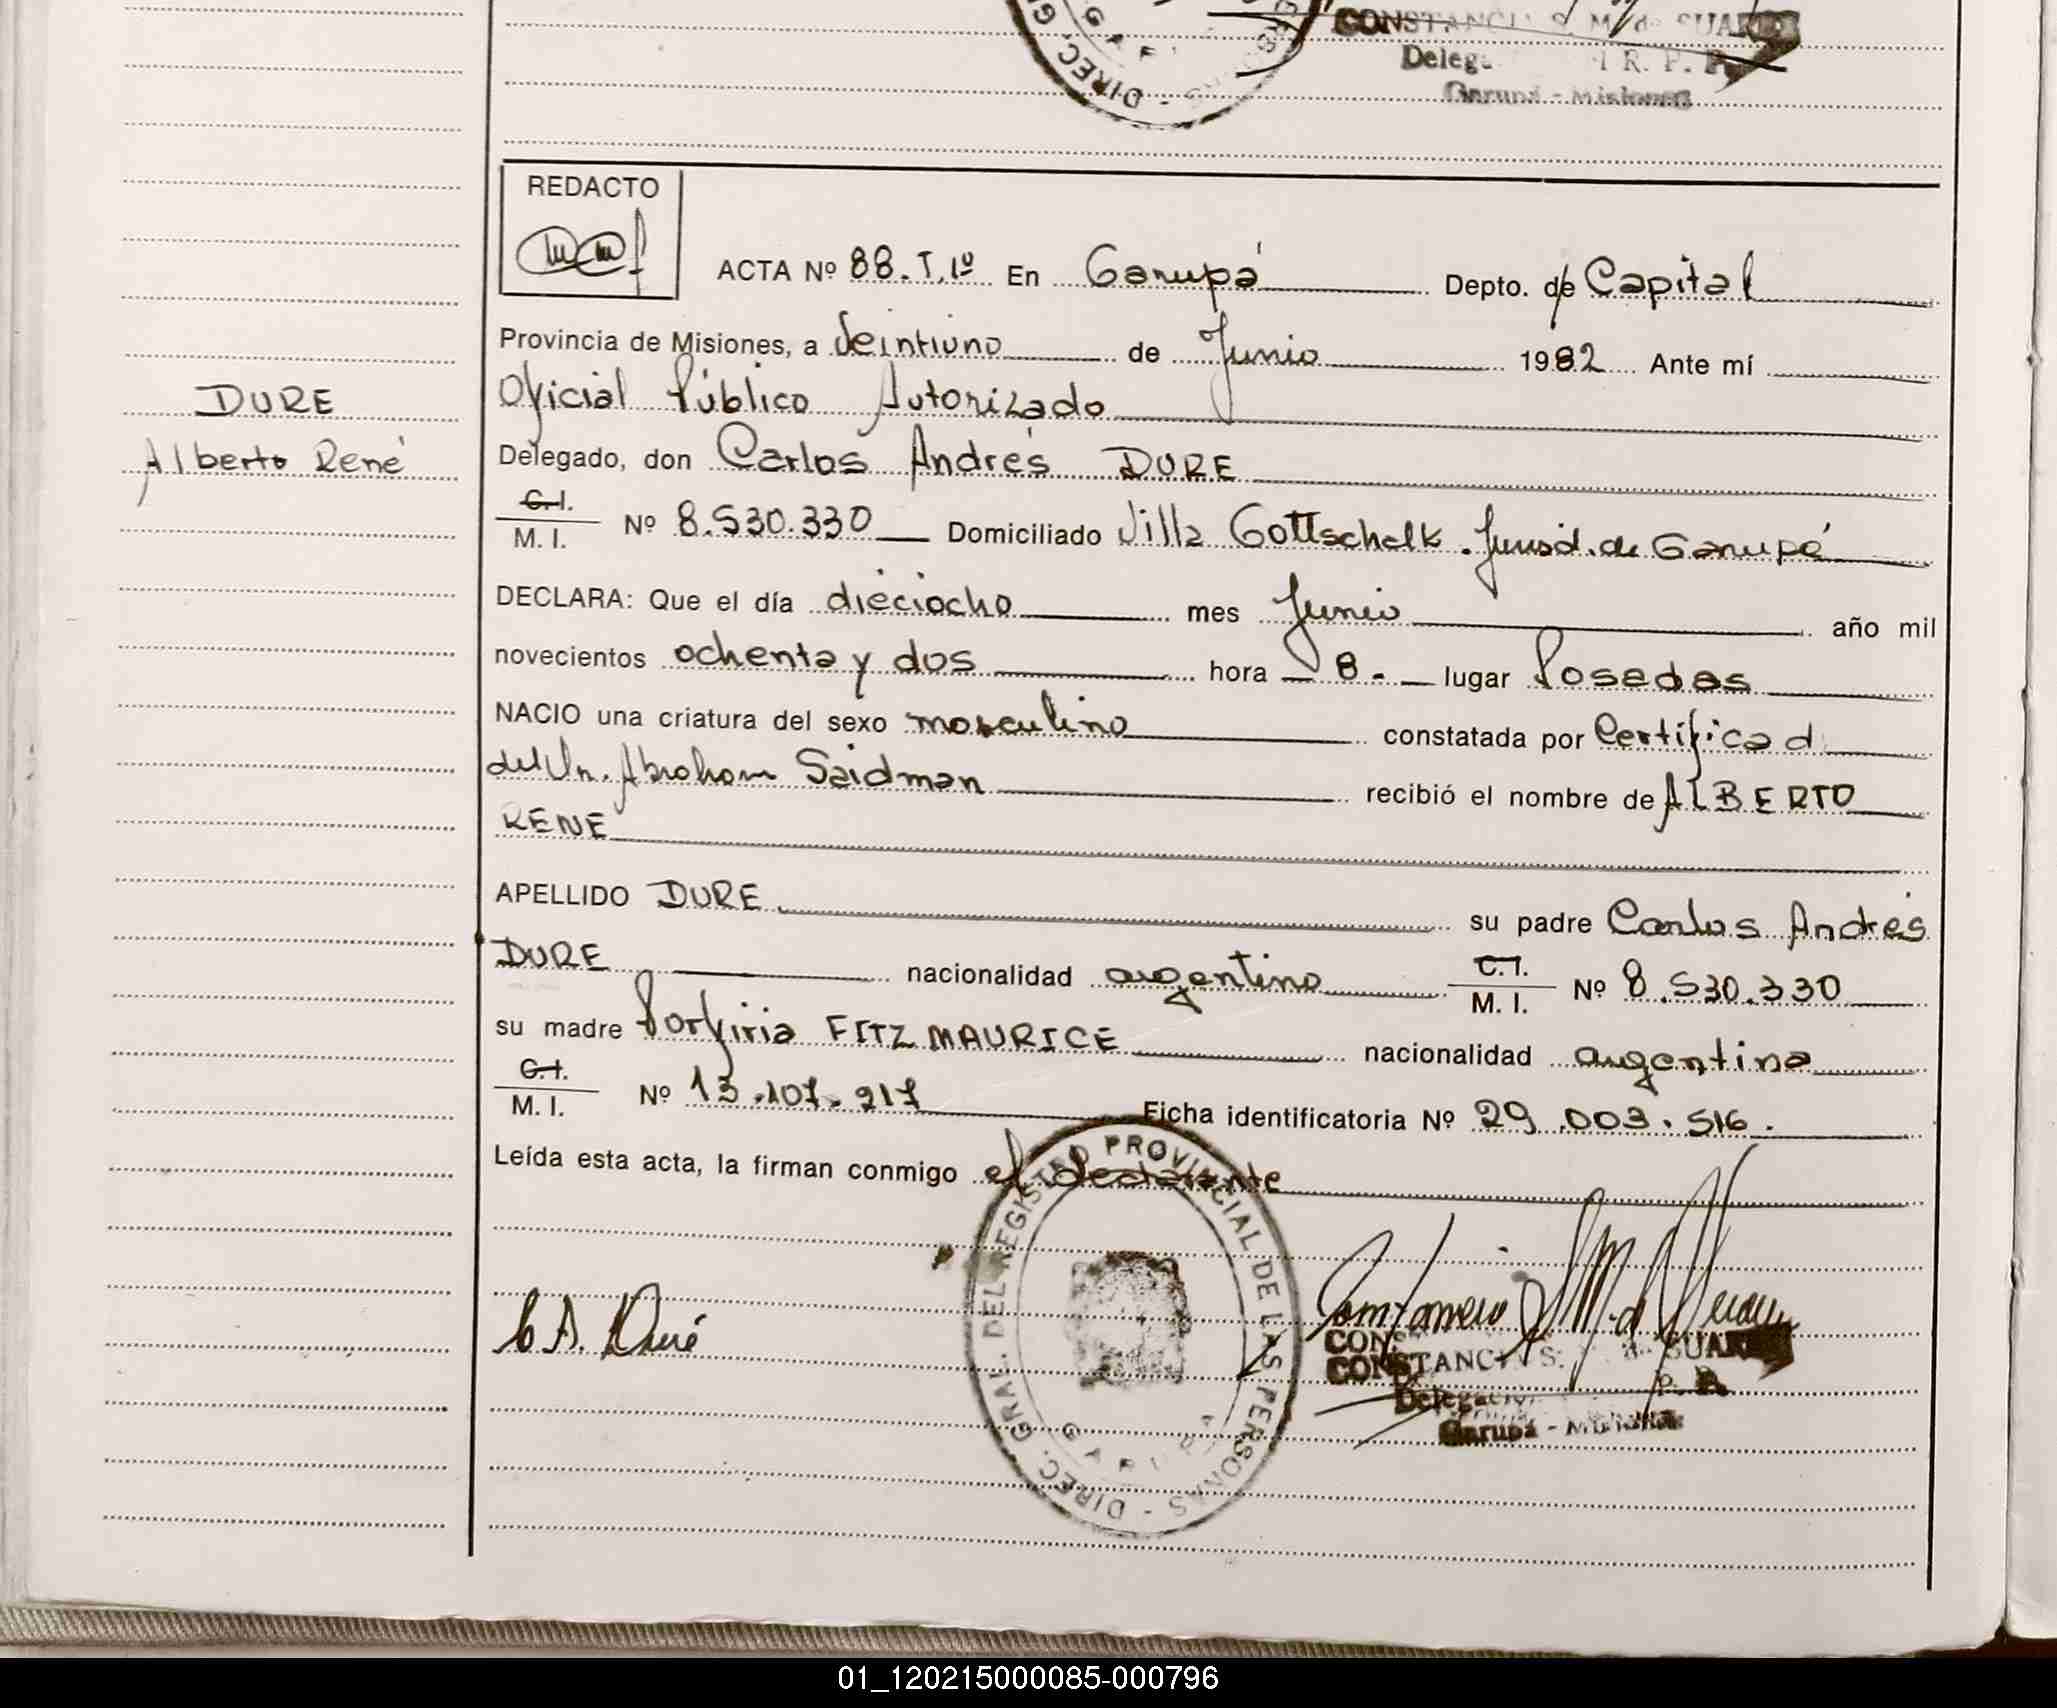 CONSTANCIA S. M. de SUAREZ
Deleg. R. P. P.
Garupá - Misiones
REDACTO
ACTA Nº 88. T. 1º En Garupá Depto. de Capital
Provincia de Misiones, a Veintiuno de Junio 1982 Ante mí
Oficial Público Autorizado
DURE
Alberto René
Delegado, don Carlos Andrés DURE
C.I.
M. I. Nº 8.530.330 Domiciliado Villa Gottschalk. Jurisd. de Garupá
DECLARA: Que el día dieciocho mes Junio año mil
novecientos ochenta y dos hora 8.- lugar Posadas
NACIO una criatura del sexo masculino constatada por Certificad
del Dr. Abraham Saidman recibió el nombre de ALBERTO
RENE
APELLIDO DURE su padre Carlos Andrés
DURE nacionalidad argentino C.I. M. I. Nº 8.530.330
su madre Porfiria FITZ MAURICE nacionalidad argentina
C.I.
M. I. Nº 13.107.217 Ficha identificatoria Nº 29.003.516.
Leída esta acta, la firman conmigo el declarante
DIREC. GRAL. DEL REGISTRO PROVINCIAL DE LAS PERSONAS - GARUPA
C A. Duré
CONSTANCIA S. de SUAREZ
Garupá - Misiones
01_120215000085-000796